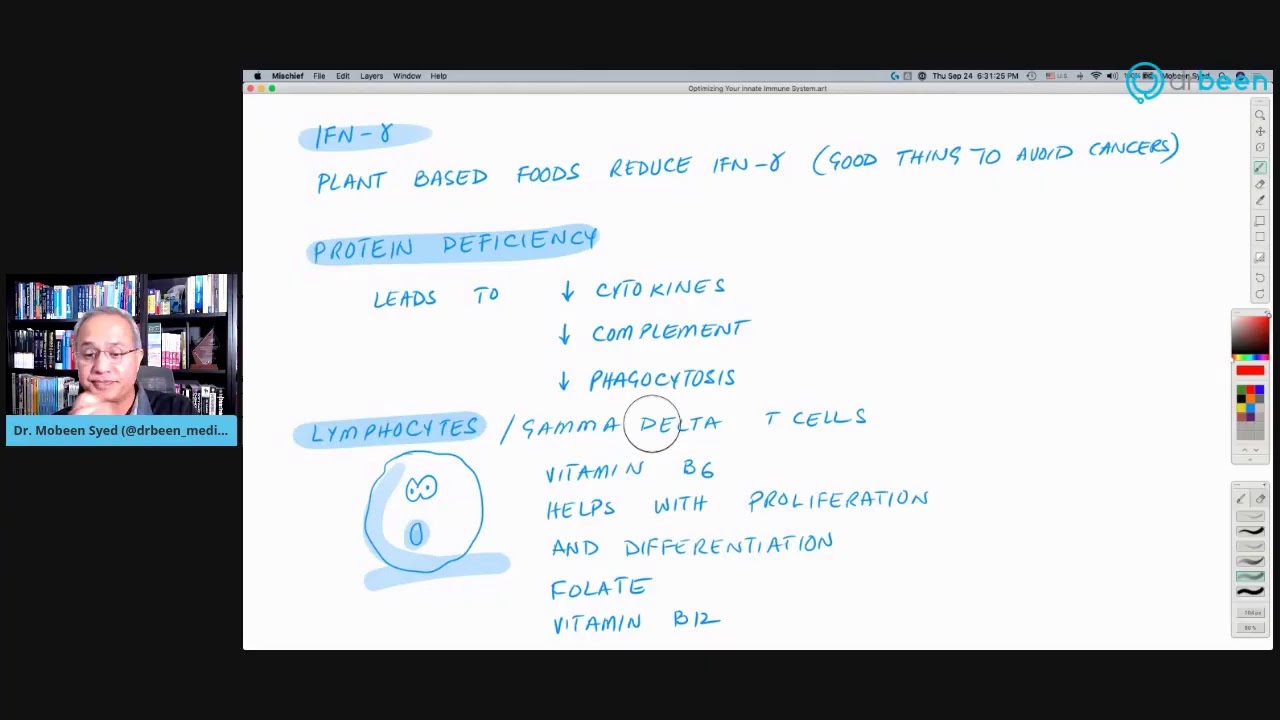 Mischief File Edit Layers Window Help
Thu Sep 24 6:31:25 PM
Optimizing Your Innate Immune System.art
drbeen
IFN-γ
PLANT BASED FOODS REDUCE IFN-γ (GOOD THING TO AVOID CANCERS)
PROTEIN DEFICIENCY
LEADS TO ↓ CYTOKINES
↓ COMPLEMENT
↓ PHAGOCYTOSIS
LYMPHOCYTES / GAMMA DELTA T CELLS
VITAMIN B6
HELPS WITH PROLIFERATION
AND DIFFERENTIATION
FOLATE
VITAMIN B12
Dr. Mobeen Syed (@drbeen_medi...